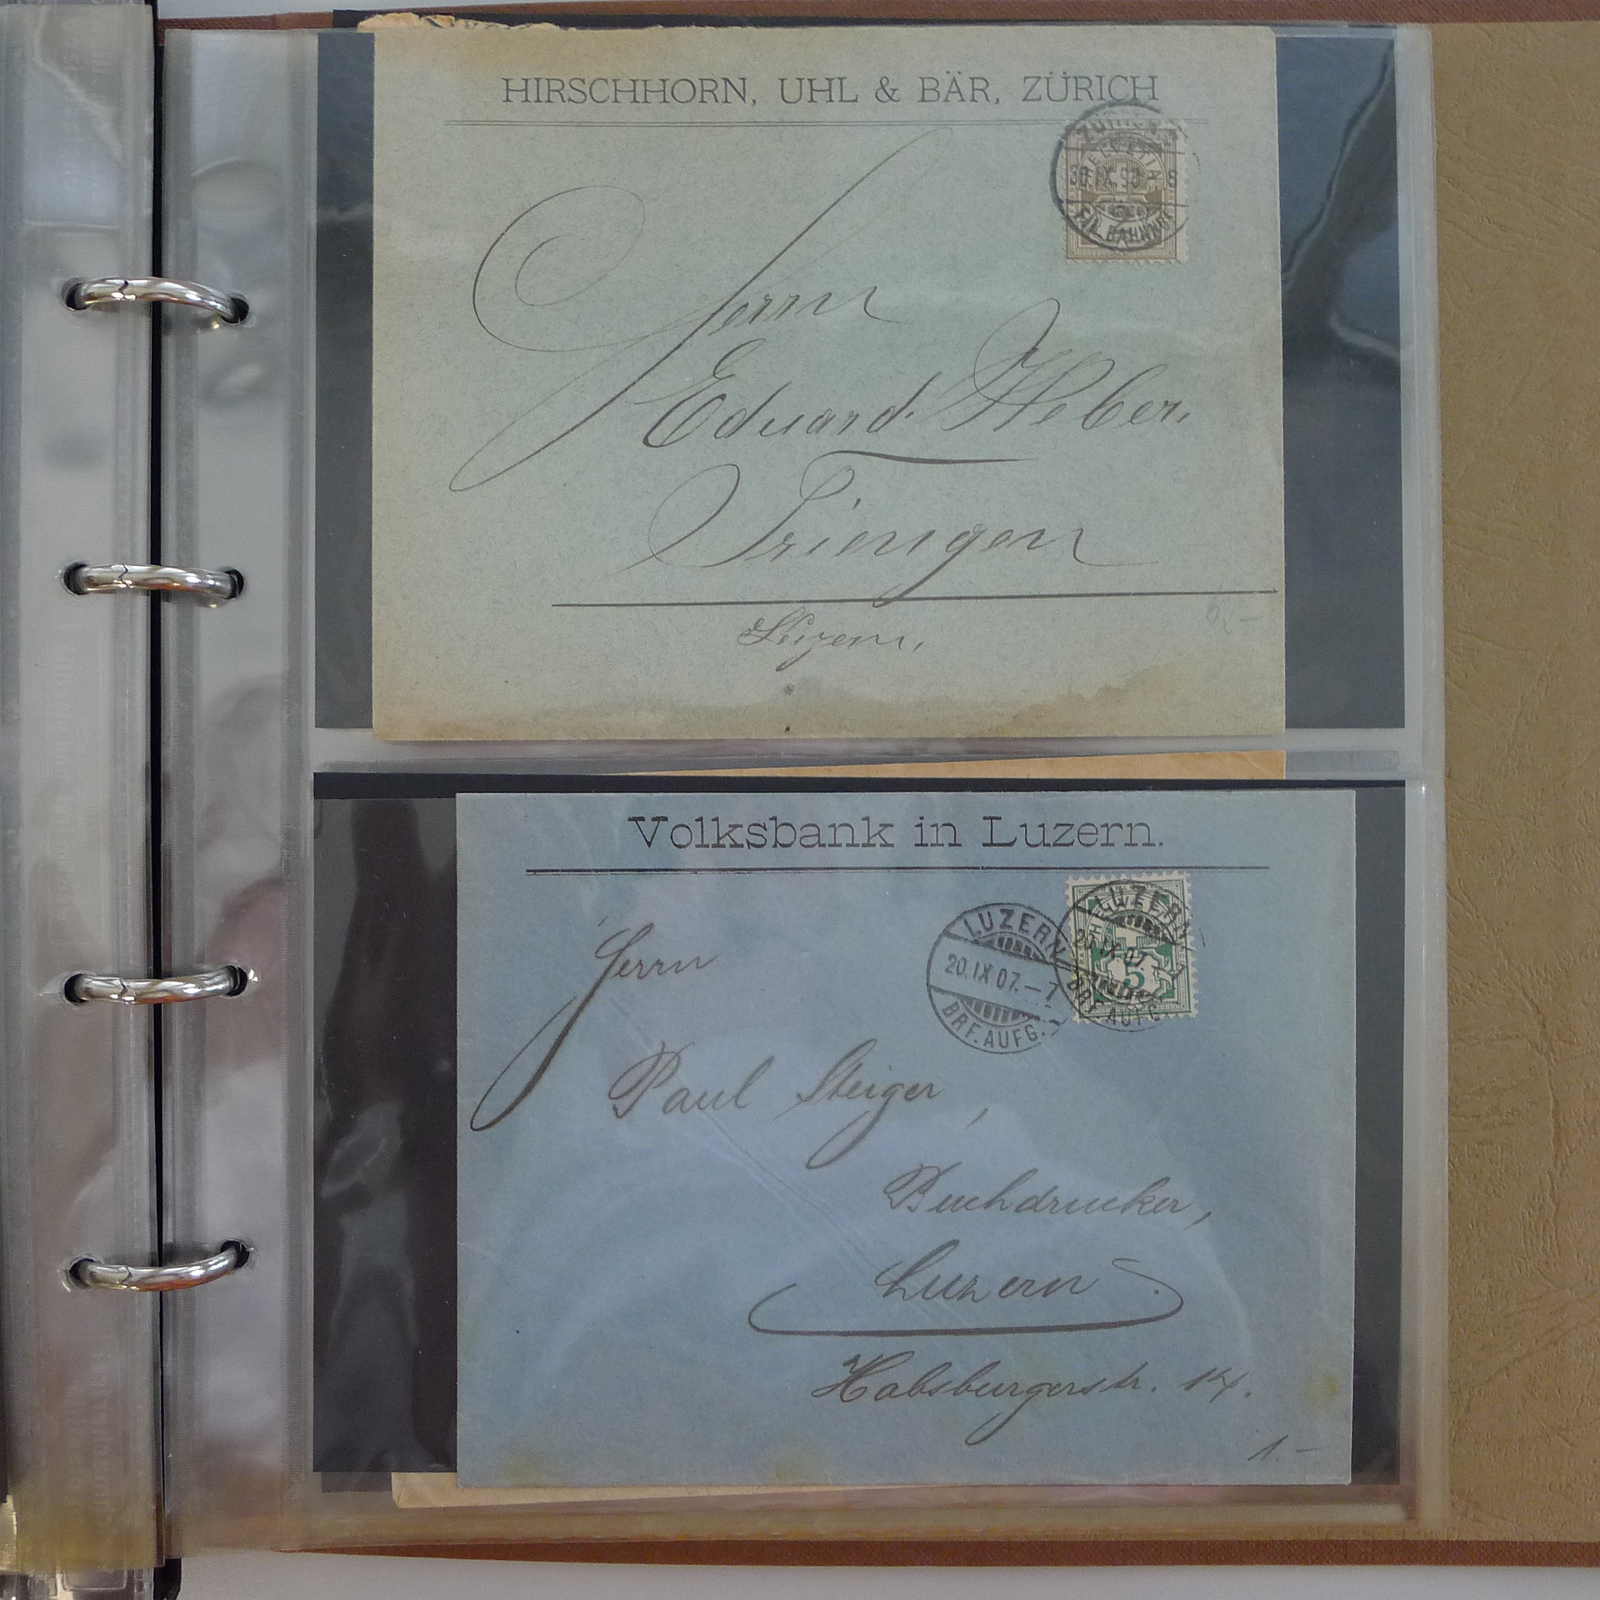 HIRSCHHORN, UHL & BÄR, ZÜRICH
ZÜRICH
HELVETIA
30.IX.9
FIL. BAHNHOF
Herrn
Eduard Weber.
Triengen
Luzern.
Volksbank in Luzern.
LUZERN
20.IX.07.–7
BRF.AUFG.
LUZERN
20.IX.07.
BRF.AUFG.
5
Herrn
Paul Steiger,
Buchdrucker,
Luzern.
Habsburgerstr. 14.
1.–